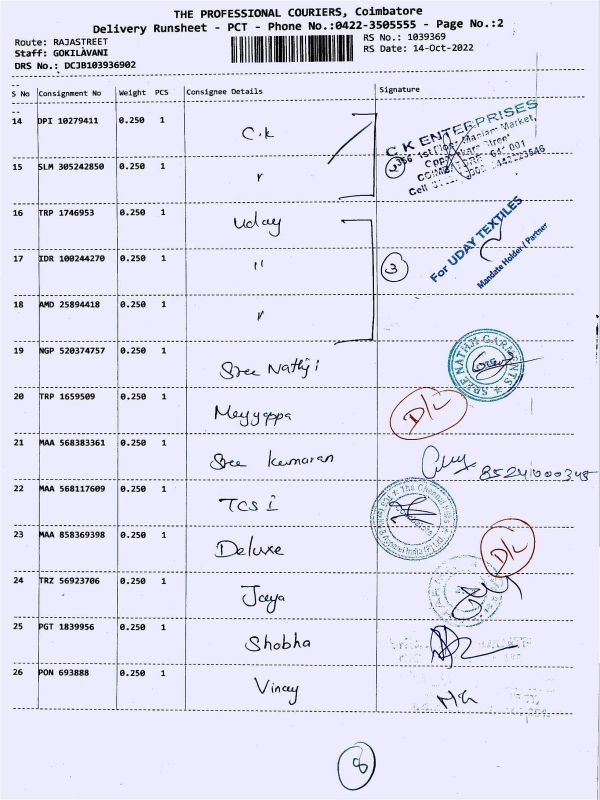 THE PROFESSIONAL COURIERS, Coimbatore
Delivery Runsheet - PCT - Phone No.:0422-3505555 - Page No.:2
Route: RAJASTREET
RS No.: 1039369
Staff: GOKILAVANI
RS Date: 14-Oct-2022
DRS No.: DCJB103936902
S No Consignment No Weight PCS Consignee Details Signature
14 DPI 10279411 0.250 1 C.K
C K ENTERPRISES
1st Floor, Maniam Market,
641 001
15 SLM 305242850 0.250 1 〃
2
16 TRP 1746953 0.250 1 Uday
For UDAY TEXTILES
Mandate Holder / Partner
17 IDR 100244270 0.250 1 〃
3
18 AMD 25894418 0.250 1 〃
19 NGP 520374757 0.250 1 Sree Nathji
SREE NATHJI GARMENTS
20 TRP 1659509 0.250 1 Meyyappa D/L
21 MAA 568383361 0.250 1 Sree Kumaran
22 MAA 568117609 0.250 1 TCS I
The Chennai Silks
23 MAA 858369398 0.250 1 Deluxe D/L
24 TRZ 56923706 0.250 1 Jaya
25 PGT 1839956 0.250 1 Shobha
26 PON 693888 0.250 1 Vinay
8